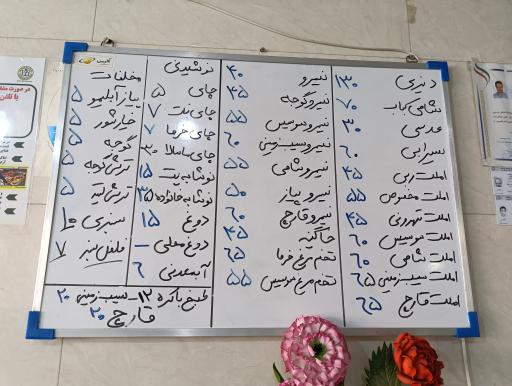 دیزی ۱۳۰
شامی کباب ۷۰
عدسی ۳۰
سیرابی ۶۰
املت ربی ۴۵
املت مخصوص ۵۵
املت تهرونی ۴۵
املت سوسیس ۶۰
املت شامی ۶۰
املت سیب زمینی ۶۵
املت قارچ ۶۵
نیمرو ۴۰
نیمرو گوجه ۴۵
نیمرو سوسیس ۵۵
نیمرو سیب زمینی ۶۰
نیمرو شامی ۵۵
نیمرو پیاز ۵۰
نیمرو قارچ ۶۰
خاگینه ۴۵
تخم مرغ خرما ۶۵
تخم مرغ سوسیس ۵۵
نوشیدنی
چای ۵
چای نبات ۷
چای خرما ۷
نوشابه پت ۱۵
نوشابه خانواده ۳۵
دوغ ۱۵
دوغ محلی –
آب معدنی ۶
مخلفات
پیاز آبلیمو ۵
خیارشور ۵
گوجه ۵
ترشی گوجه ۵
ترشی لیته ۵
سبزی ۱۰
فلفل سبز ۷
طبخ با کره ۱۲ – سیب زمینی ۲۰
قارچ ۲۰